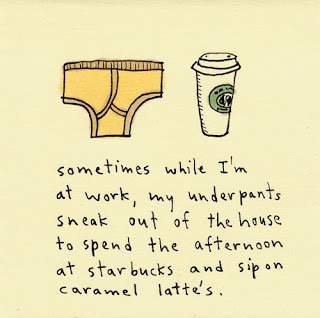 sometimes while I'm
at work, my underpants
sneak out of the house
to spend the afternoon
at starbucks and sip on
caramel latte's.